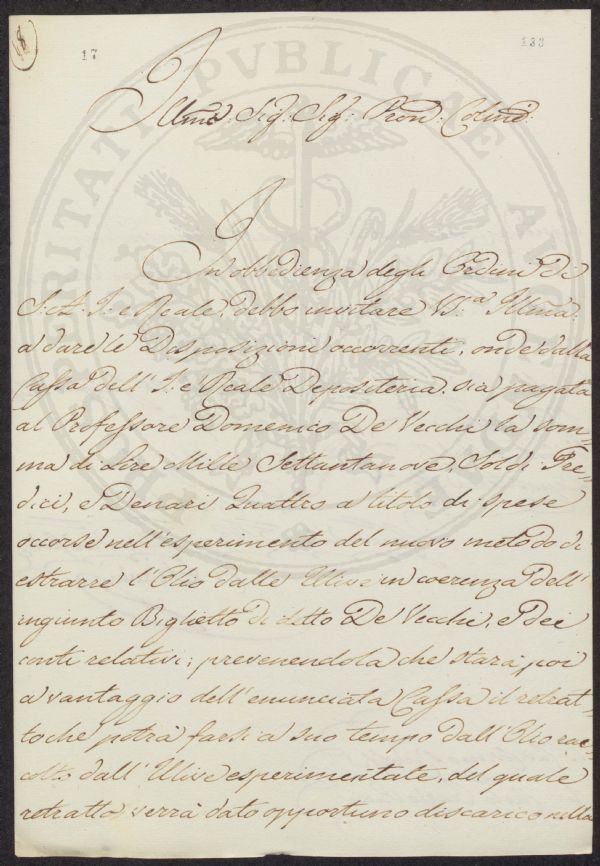 18
17
133
Illmo: Sig: Sig: Pron: Colmo:
In obbedienza degli Ordini di
S. A. I. e Reale, debbo invitare VS:a Illma:
a dare le Disposizioni occorrenti, onde dalla
Cassa dell'I. e Reale Depositeria. sia pagata
al Professore Domenico De' Vecchi la Som-
ma di Lire Mille Settantanove, Soldi Tre-
dici, e Denari Quattro a titolo di spese
occorse nell'esperimento del nuovo metodo di
estrarre l'Olio dalle Ulive in coerenza dell'
ingiunto Biglietto di detto De' Vecchi, e dei
conti relativi; prevenendola che starà poi
a vantaggio dell'enunciata Cassa il retrat-
to che potrà farsi a suo tempo dall'Olio rac-
colto dall'Ulive esperimentate, del quale
retratto, verrà dato opportuno discarico nella
PROSPERITATI PVBLICAE AVGENDAE